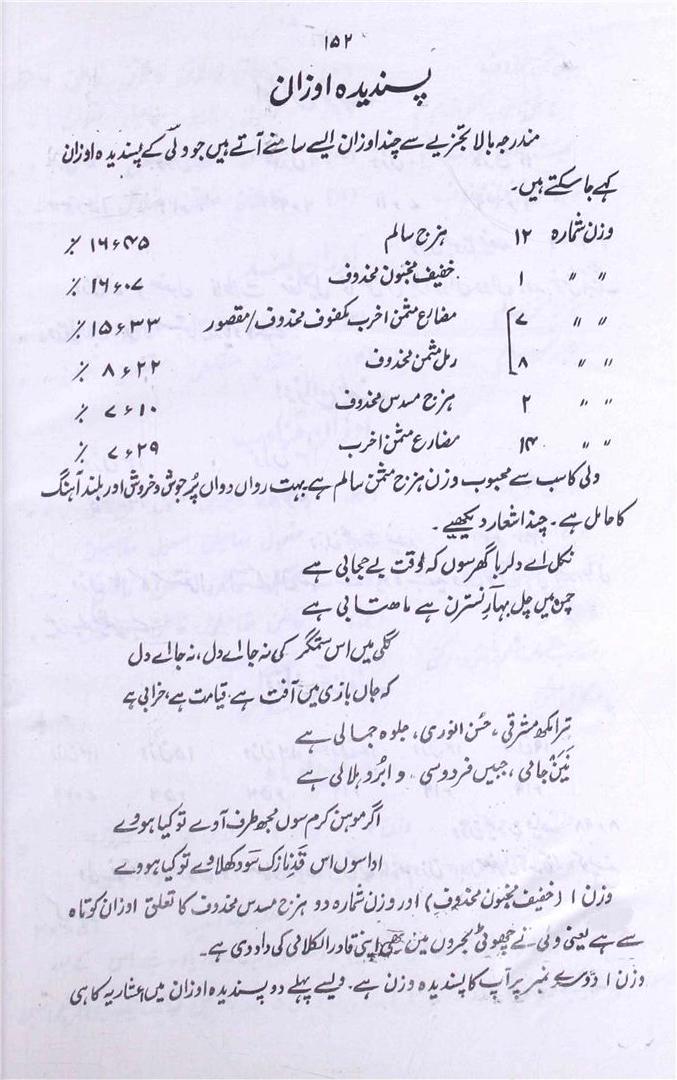 ۱۵۲
پسندیدہ اوزان
مندرجہ بالا تجزیے سے چند اوزان ایسے سامنے آتے ہیں جو ولی کے پسندیدہ اوزان
کہے جا سکتے ہیں۔
وزن شمارہ ۱۲ ہزج سالم ۱۶٫۴۵ ٪
〃 〃 ۱ خفیف مخبون محذوف ۱۶٫۰۷ ٪
〃 〃 ۷ مضارع مثمن اخرب مکفوف محذوف/مقصور ۱۵٫۳۳ ٪
〃 〃 ۸ رمل مثمن محذوف ۸٫۲۲ ٪
〃 〃 ۲ ہزج مسدس محذوف ۷٫۱۰ ٪
〃 〃 ۱۴ مضارع مثمن اخرب ۷٫۲۹ ٪
ولی کا سب سے محبوب وزن ہزج مثمن سالم ہے۔ بہت رواں دواں پُر جوش و خروش اور بلند آہنگ
کا حامل ہے۔ چند اشعار دیکھیے۔
نکل اے دلربا گھر سوں کہ وقت بے حجابی ہے
چمن میں چل بہارِ نسترن ہے ماھتابی ہے
گلی میں اس ستمگر کی نہ جا اے دل، نہ جا اے دل
کہ جاں بازی میں آفت ہے قیامت ہے، خرابی ہے
ترا مکھ مشرقی، حسُن انوری، جلوہ جمالی ہے
نَین جامی، جبیں فردوسی و ابرو ہلالی ہے
اگر موہن کرم سوں مجھ طرف آوے تو کیا ہووے
ادا سوں اس قدِ نازک سوَد کھلاوے تو کیا ہووے
وزن ۱ (خفیف مخبون محذوف) اور وزن شمارہ دو ہزج مسدس محذوف کا تعلق اوزان کوتاہ
سے ہے یعنی ولی نے چھوٹی بحروں میں بھی اپنی قادر الکلامی کی داد دی ہے۔
وزن ۱ دوسرے نمبر پر آپ کا پسندیدہ وزن ہے۔ ویسے پہلے دو پسندیدہ اوزان میں عشاریہ کا ہی